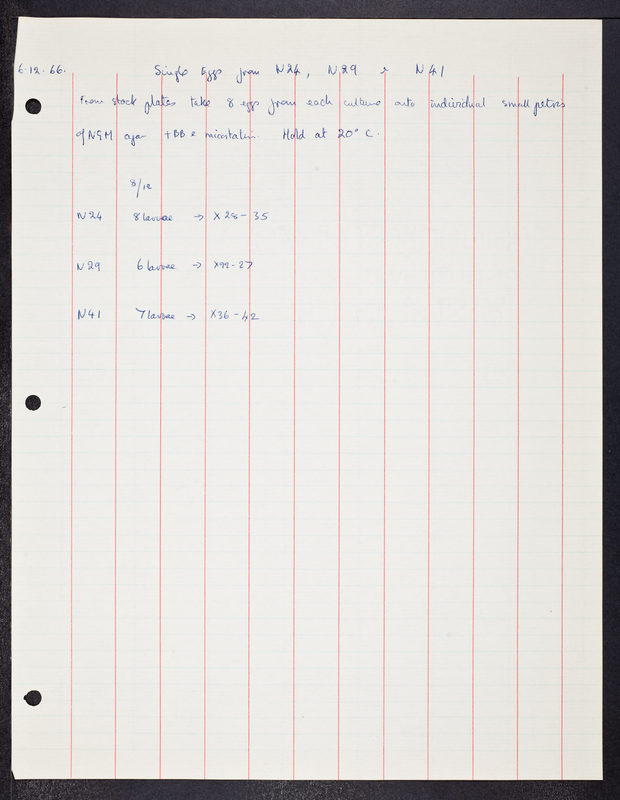 6.12.66. Single Eggs from N24, N29 & N41
From stock plates take 8 eggs from each culture onto individual small petris
of NGM agar +BB & micostatin. Hold at 20° C.
8/12
N24 8 larvae → X28-35
N29 6 larvae → X22-27
N41 7 larvae → X36-42